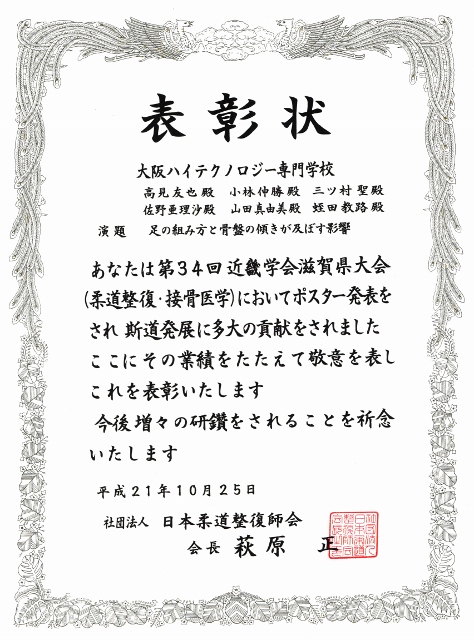 表彰状
大阪ハイテクノロジー専門学校
高見友也殿 小林伸勝殿 三ツ村聖殿
佐野亜理沙殿 山田真由美殿 蛭田教路殿
演題 足の組み方と骨盤の傾きが及ぼす影響
あなたは第34回近畿学会滋賀県大会
(柔道整復・接骨医学)においてポスター発表を
され 斯道発展に多大の貢献をされました
ここにその業績をたたえて敬意を表し
これを表彰いたします
今後増々の研鑽をされることを祈念
いたします
平成21年10月25日
社団法人 日本柔道整復師会
会長 萩原 正